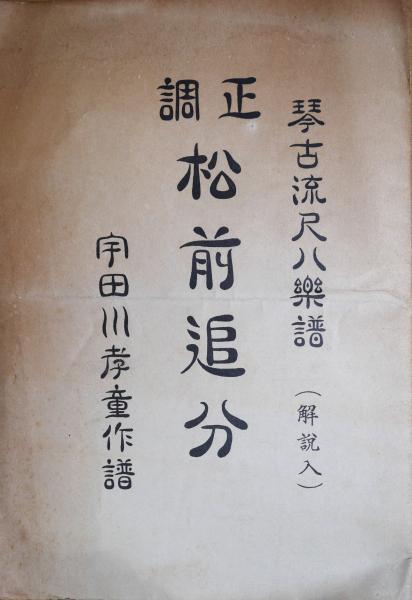 琴古流尺八樂譜（解說入）
正調
松前追分
宇田川孝童作譜